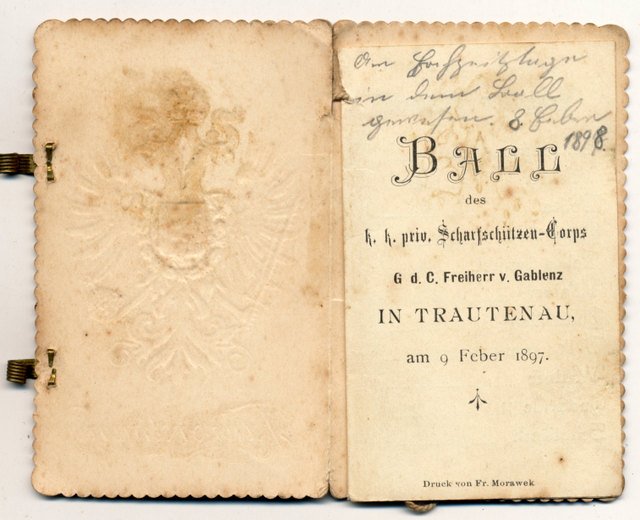 Am Hochzeitstage
in dem Ball
gewesen. 8 Feber
1898.
BALL
des
k. k. priv. Scharfschützen-Corps
G d. C. Freiherr v. Gablenz
IN TRAUTENAU,
am 9 Feber 1897.
Druck von Fr. Morawek